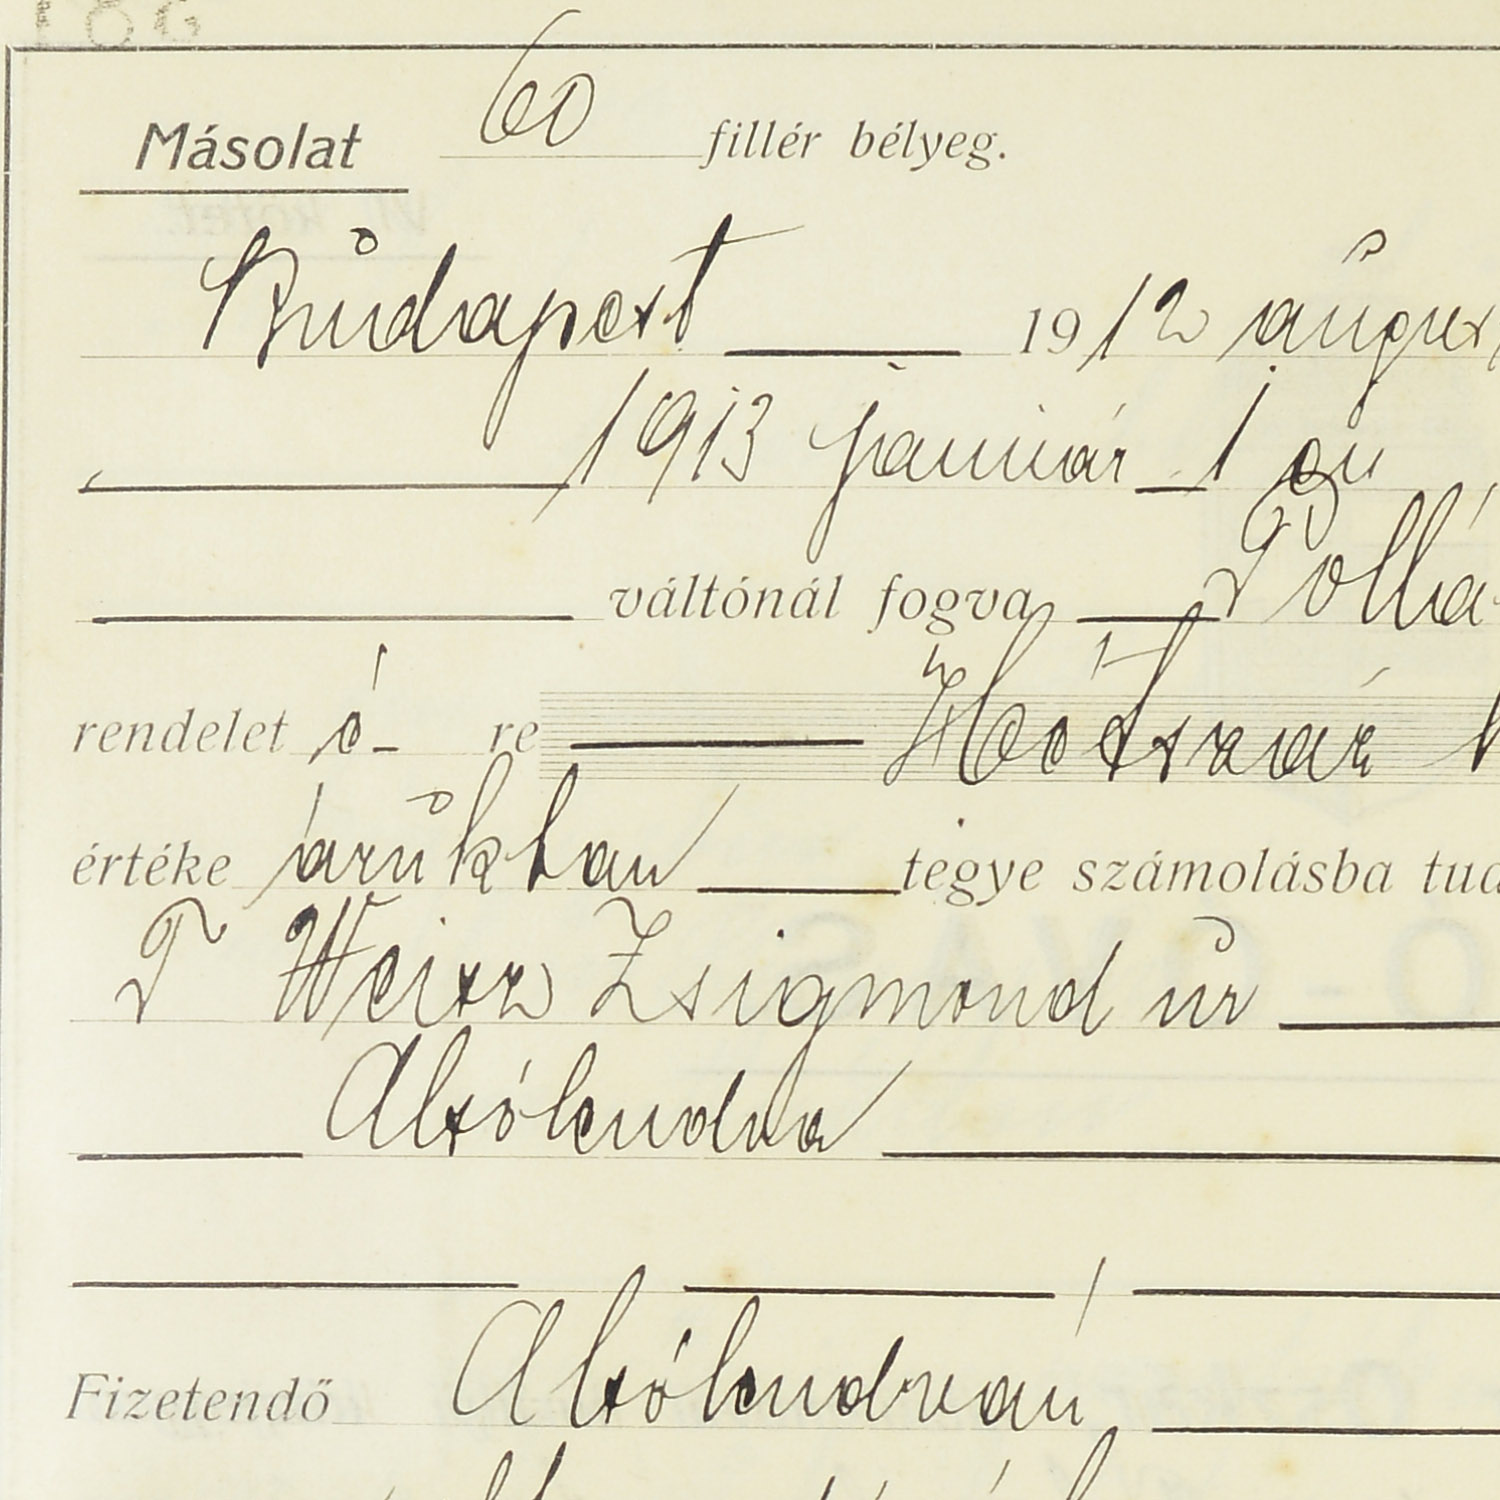 Másolat 60 fillér bélyeg.
Budapest 1912 augus
1913 január 1 én
váltónál fogva Pollá
rendelet ö- re Hétszáz
értéke árúkban tegye számolásba tud
T Weisz Zsigmond úr
Alsólendva
Fizetendő Alsólendván